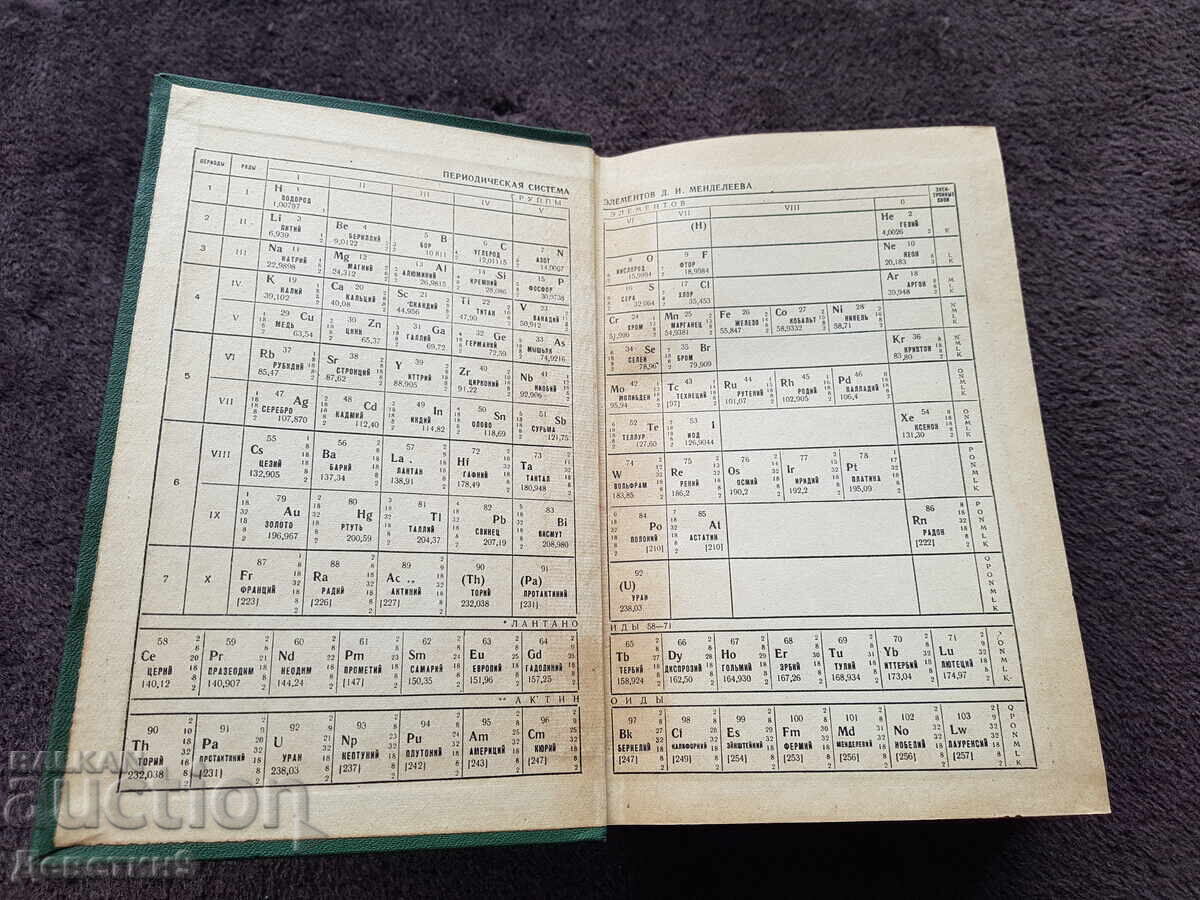 ПЕРИОДИЧЕСКАЯ СИСТЕМА ЭЛЕМЕНТОВ Д. И. МЕНДЕЛЕЕВА
ПЕРИОДЫ РЯДЫ ГРУППЫ ЭЛЕМЕНТОВ ЭЛЕКТРОННЫЕ СЛОИ
I II III IV V VI VII VIII 0
1 I H 1 ВОДОРОД 1,00797 (H) He 2 ГЕЛИЙ 4,0026 K
2 II Li 3 ЛИТИЙ 6,939 Be 4 БЕРИЛЛИЙ 9,0122 5 B БОР 10 811 6 C УГЛЕРОД 12,01115 7 N АЗОТ 14,0067 8 O КИСЛОРОД 15,9994 9 F ФТОР 18,9984 Ne 10 НЕОН 20,183 LK
3 III Na 11 НАТРИЙ 22,9898 Mg 12 МАГНИЙ 24,312 13 Al АЛЮМИНИЙ 26,9815 14 Si КРЕМНИЙ 28,086 15 P ФОСФОР 30,9738 16 S СЕРА 32 064 17 Cl ХЛОР 35,453 Ar 18 АРГОН 39,948 MLK
4 IV K 19 КАЛИЙ 39,102 Ca 20 КАЛЬЦИЙ 40,08 Sc 21 СКАНДИЙ 44,956 Ti 22 ТИТАН 47,90 V 23 ВАНАДИЙ 50,912 Cr 24 ХРОМ 51,996 Mn 25 МАРГАНЕЦ 54,9381 Fe 26 ЖЕЛЕЗО 55,847 Co 27 КОБАЛЬТ 58,9332 Ni 28 НИКЕЛЬ 58,71 NMLK
V 29 Cu МЕДЬ 63,54 30 Zn ЦИНК 65,37 31 Ga ГАЛЛИЙ 69,72 32 Ge ГЕРМАНИЙ 72,59 33 As МЫШЬЯК 74,9216 34 Se СЕЛЕН 78,96 35 Br БРОМ 79,909 Kr 36 КРИПТОН 83,80 NMLK
5 VI Rb 37 РУБИДИЙ 85,47 Sr 38 СТРОНЦИЙ 87,62 Y 39 ИТТРИЙ 88,905 Zr 40 ЦИРКОНИЙ 91,22 Nb 41 НИОБИЙ 92,906 Mo 42 МОЛИБДЕН 95,94 Tc 43 ТЕХНЕЦИЙ [97] Ru 44 РУТЕНИЙ 101,07 Rh 45 РОДИЙ 102,905 Pd 46 ПАЛЛАДИЙ 106,4 ONMLK
VII 47 Ag СЕРЕБРО 107,870 48 Cd КАДМИЙ 112,40 49 In ИНДИЙ 114,82 50 Sn ОЛОВО 118,69 51 Sb СУРЬМА 121,75 52 Te ТЕЛЛУР 127,60 53 I ИОД 126,9044 Xe 54 КСЕНОН 131,30 ONMLK
6 VIII 55 Cs ЦЕЗИЙ 132,905 56 Ba БАРИЙ 137,34 57 La.. ЛАНТАН 138,91 72 Hf ГАФНИЙ 178,49 73 Ta ТАНТАЛ 180,948 74 W ВОЛЬФРАМ 183,85 75 Re РЕНИЙ 186,2 76 Os ОСМИЙ 190,2 77 Ir ИРИДИЙ 192,2 78 Pt ПЛАТИНА 195,09 PONMLK
IX 79 Au ЗОЛОТО 196,967 80 Hg РТУТЬ 200,59 81 Tl ТАЛЛИЙ 204,37 82 Pb СВИНЕЦ 207,19 83 Bi ВИСМУТ 208,980 84 Po ПОЛОНИЙ [210] 85 At АСТАТИН [210] 86 Rn РАДОН [222] PONMLK
7 X 87 Fr ФРАНЦИЙ [223] 88 Ra РАДИЙ [226] 89 Ac.. АКТИНИЙ [227] 90 (Th) ТОРИЙ 232,038 91 (Pa) ПРОТАКТИНИЙ [231] 92 (U) УРАН 238,03 QPONMLK
*ЛАНТАНОИДЫ 58—71
58 Ce ЦЕРИЙ 140,12 59 Pr ПРАЗЕОДИМ 140,907 60 Nd НЕОДИМ 144,24 61 Pm ПРОМЕТИЙ [147] 62 Sm САМАРИЙ 150,35 63 Eu ЕВРОПИЙ 151,96 64 Gd ГАДОЛИНИЙ 157,25 65 Tb ТЕРБИЙ 158,924 66 Dy ДИСПРОЗИЙ 162,50 67 Ho ГОЛЬМИЙ 164,930 68 Er ЭРБИЙ 167,26 69 Tu ТУЛИЙ 168,934 70 Yb ИТТЕРБИЙ 173,04 71 Lu ЛЮТЕЦИЙ 174,97 PONMLK
** АКТИНОИДЫ
90 Th ТОРИЙ 232,038 91 Pa ПРОТАКТИНИЙ [231] 92 U УРАН 238,03 93 Np НЕПТУНИЙ [237] 94 Pu ПЛУТОНИЙ [242] 95 Am АМЕРИЦИЙ [243] 96 Cm КЮРИЙ [247] 97 Bk БЕРКЛИЙ [247] 98 Cf КАЛИФОРНИЙ [249] 99 Es ЭЙНШТЕЙНИЙ [254] 100 Fm ФЕРМИЙ [253] 101 Md МЕНДЕЛЕВИЙ [256] 102 No НОБЕЛИЙ [256] 103 Lw ЛАУРЕНСИЙ [257] QPONMLK
BALKAN
auction
Деветкин9